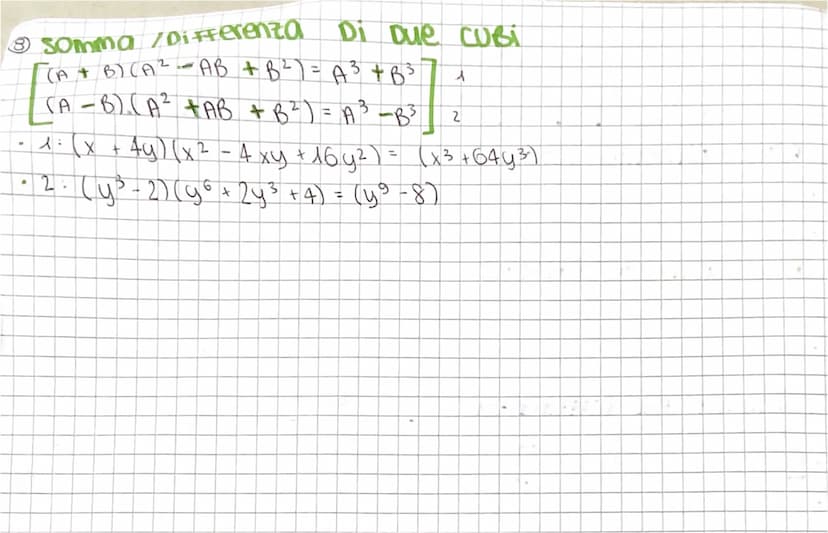 ⑧ SOMMA / DIFFERENZA DI DUE CUBI
(A + B)(A² - AB + B²) = A³ + B³ 1
(A - B).(A² + AB + B²) = A³ - B³ 2
• 1: (x + 4y)(x² - 4xy + 16y²) = (x³ + 64y³)
• 2: (y³ - 2)(y⁶ + 2y³ + 4) = (y⁹ - 8)